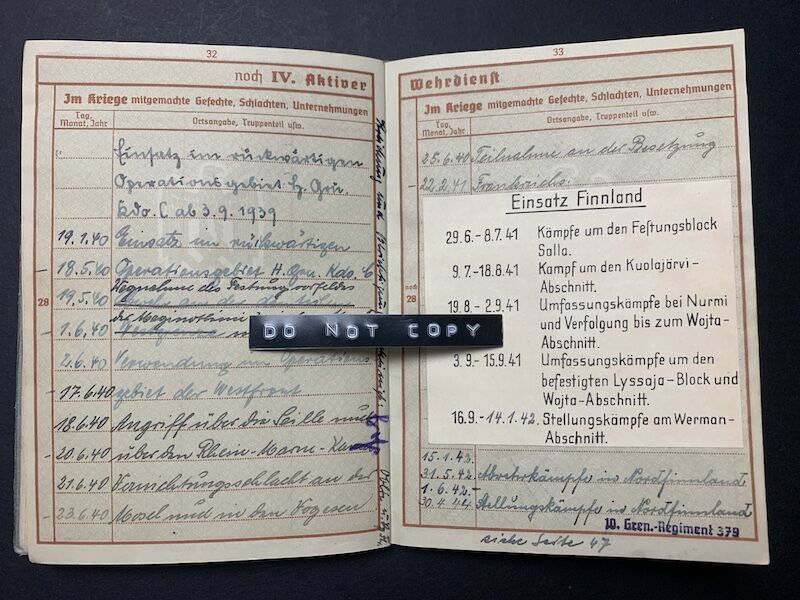 32
noch IV. Aktiver
Im Kriege mitgemachte Gefechte, Schlachten, Unternehmungen
Tag, Monat, Jahr
Ortsangabe, Truppenteil usw.
Einsatz im rückwärtigen
Operationsgebiet H. Gru.
Kdo. C ab 3.9.1939
19.1.40 Einsatz im rückwärtigen
- 18.5.40 Operationsgebiet H. Gru. Kdo. C
19.5.40 Wegnahme des Festungsvorfeldes
der Maginotlinie
- 1.6.40
28
2.6.40 Verwendung im Operations
- 17.6.40 gebiet der Westfront
18.6.40 Angriff über die Seille und
- 20.6.40 über den Rhein-Marne-Kanal
21.6.40 Vernichtungsschlacht an der
- 23.6.40 Mosel und in den Vogesen
DO NOT COPY
33
Wehrdienst
Im Kriege mitgemachte Gefechte, Schlachten, Unternehmungen
Tag, Monat, Jahr
Ortsangabe, Truppenteil usw.
25.6.40 Teilnahme an der Besetzung
- 22.2.41 Frankreichs.
Einsatz Finnland
29.6.- 8.7.41 Kämpfe um den Festungsblock
Salla.
9.7.-18.8.41 Kampf um den Kuolajärvi-
Abschnitt.
noch
28
19.8.- 2.9.41 Umfassungskämpfe bei Nurmi
und Verfolgung bis zum Wojta-
Abschnitt.
3.9.- 15.9.41 Umfassungskämpfe um den
befestigten Lyssaja-Block und
Wojta-Abschnitt.
16.9.- 14.1.42. Stellungskämpfe am Werman-
Abschnitt.
15.1.42.-
31.5.42. Abwehrkämpfe in Nordfinnland
1.6.42.-
30.4.44 Stellungskämpfe in Nordfinnland
10. Gren.-Regiment 379
siehe Seite 47